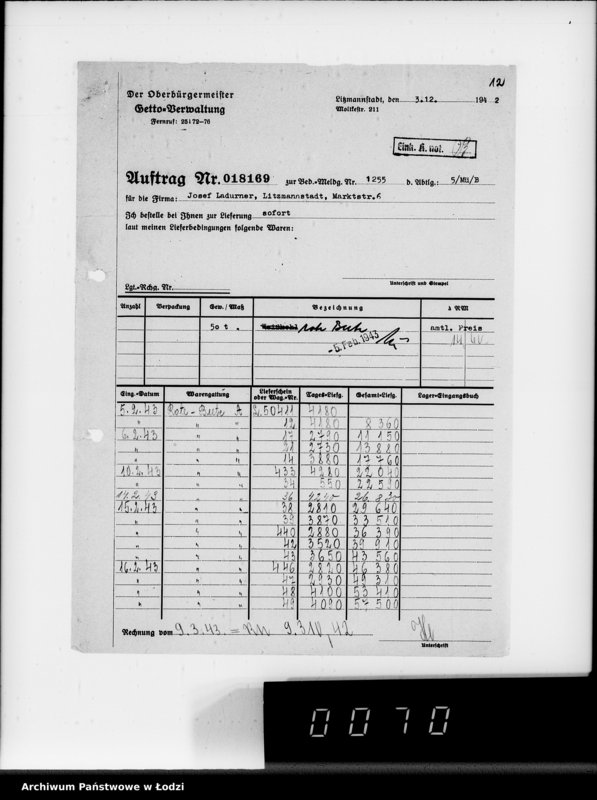 12
Der Oberbürgermeister
Getto-Verwaltung
Fernruf: 25172-76
Litzmannstadt, den 3.12. 1942
Moltkestr. 211
Eink. K. not.
Auftrag Nr. 018169 zur Bed.-Meldg. Nr. 1255 d. Abtlg.: 5/Mü/B
für die Firma: Josef Ladurner, Litzmannstadt, Marktstr.6
Ich bestelle bei Ihnen zur Lieferung sofort
laut meinen Lieferbedingungen folgende Waren:
Unterschrift und Stempel
Lgt.-Rchg. Nr.
Anzahl Verpackung Gew. / Maß Bezeichnung à RM
50 t . rote Bete amtl. Preis
-5. Feb. 1943
Eing.-Datum Warengattung Lieferschein oder Wag.-Nr. Tages-Liefg. Gesamt-Liefg. Lager-Eingangsbuch
5.2.43 Rote-Beete A 250411 4180
" " " 12 4180 8 360
6.2.43 " " 17 2790 11 150
" " " 21 2730 13 880
" " " 14 3880 17 760
10.2.43 " " 433 4280 22 040
" " " 34 550 22 590
14.2.43 " " 36 4240 26 830
15.2.43 " " 38 2810 29 640
" " " 39 3870 33 510
" " " 440 2880 36 390
" " " 42 3520 39 910
" " " 43 3650 43 560
16.2.43 " " 446 2820 46 380
" " " 47 2930 49 310
" " " 48 4100 53 410
" " " 49 4090 57 500
Rechnung vom 9.3.43. = RM 9.310,42
Unterschrift
0070
Archiwum Państwowe w Łodzi